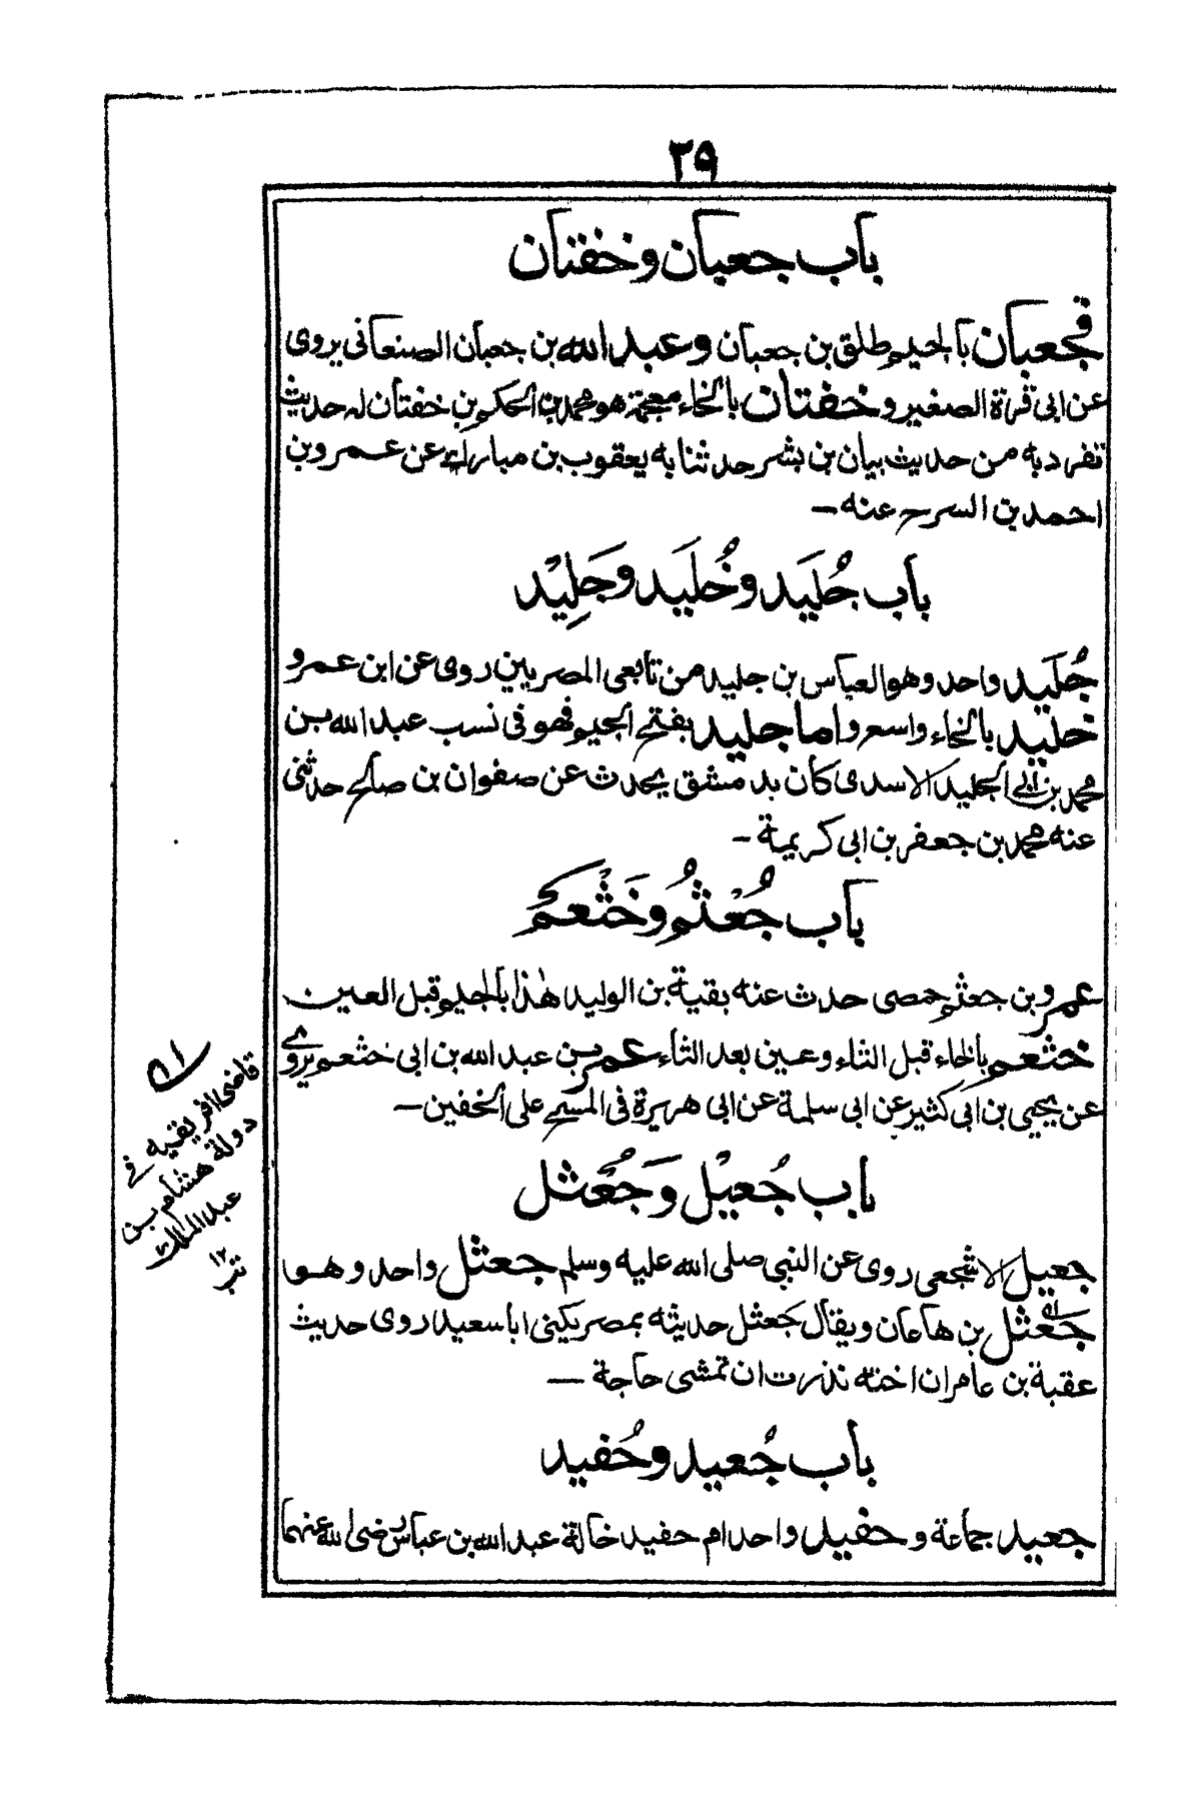 ٣٩
باب جعبان وخفتان
فجعبان بالجيم طلق بن جعبان وعبد الله بن جعبان الصنعانى يروى
عن ابى قرة الصغير وخفتان بالخاء معجمة هو محمد بن الحكم بن خفتان له حديث
تفرد به من حديث بيان بن بشر حدثنا به يعقوب بن مبارك عن عمرو بن
احمد بن السرح عنه ـ
باب جُلَيد وخُلَيد وجَلِيْد
جُلَيد واحد وهو العباس بن جليد من تابعى المصريين روى عن ابن عمر و
خليد بالخاء واسع واما جليد بفتح الجيم فهو فى نسب عبد الله بن
محمد بن ابى الجليد الاسدى كان بدمشق يحدث عن صفوان بن صالح حدثنى
عنه محمد بن جعفر بن ابى كريمة ـ
باب جُعْثُم وخَثْعَم
عمرو بن جعثم حمصى حدث عنه بقية بن الوليد هٰذا بالجيم قبل العين
خثعم بالخاء قبل الثاء وعين بعد الثاء عمر بن عبد الله بن ابى خثعم يروى
عن يحيى بن ابى كثير عن ابى سلمة عن ابى هريرة فى المسح على الخفين ـ
باب جُعيْل وَجُعْثل
جعيل الاشجعى روى عن النبى صلى الله عليه وسلم جعثل واحد وهو
جَعْثل بن هاعان ويقال جَعثل حديثه بمصر يكنى ابا سعيد روى حديث
عقبة بن عامر ان اخته نذرت ان تمشى حاجة ـ
باب جُعيد وحُفيد
جعيد جماعة وحفيد واحد ام حفيد خالة عبد الله بن عباس رضى الله عنهما
قاضى افريقيه فى
دولة هشام بن
عبد الملك
١٢